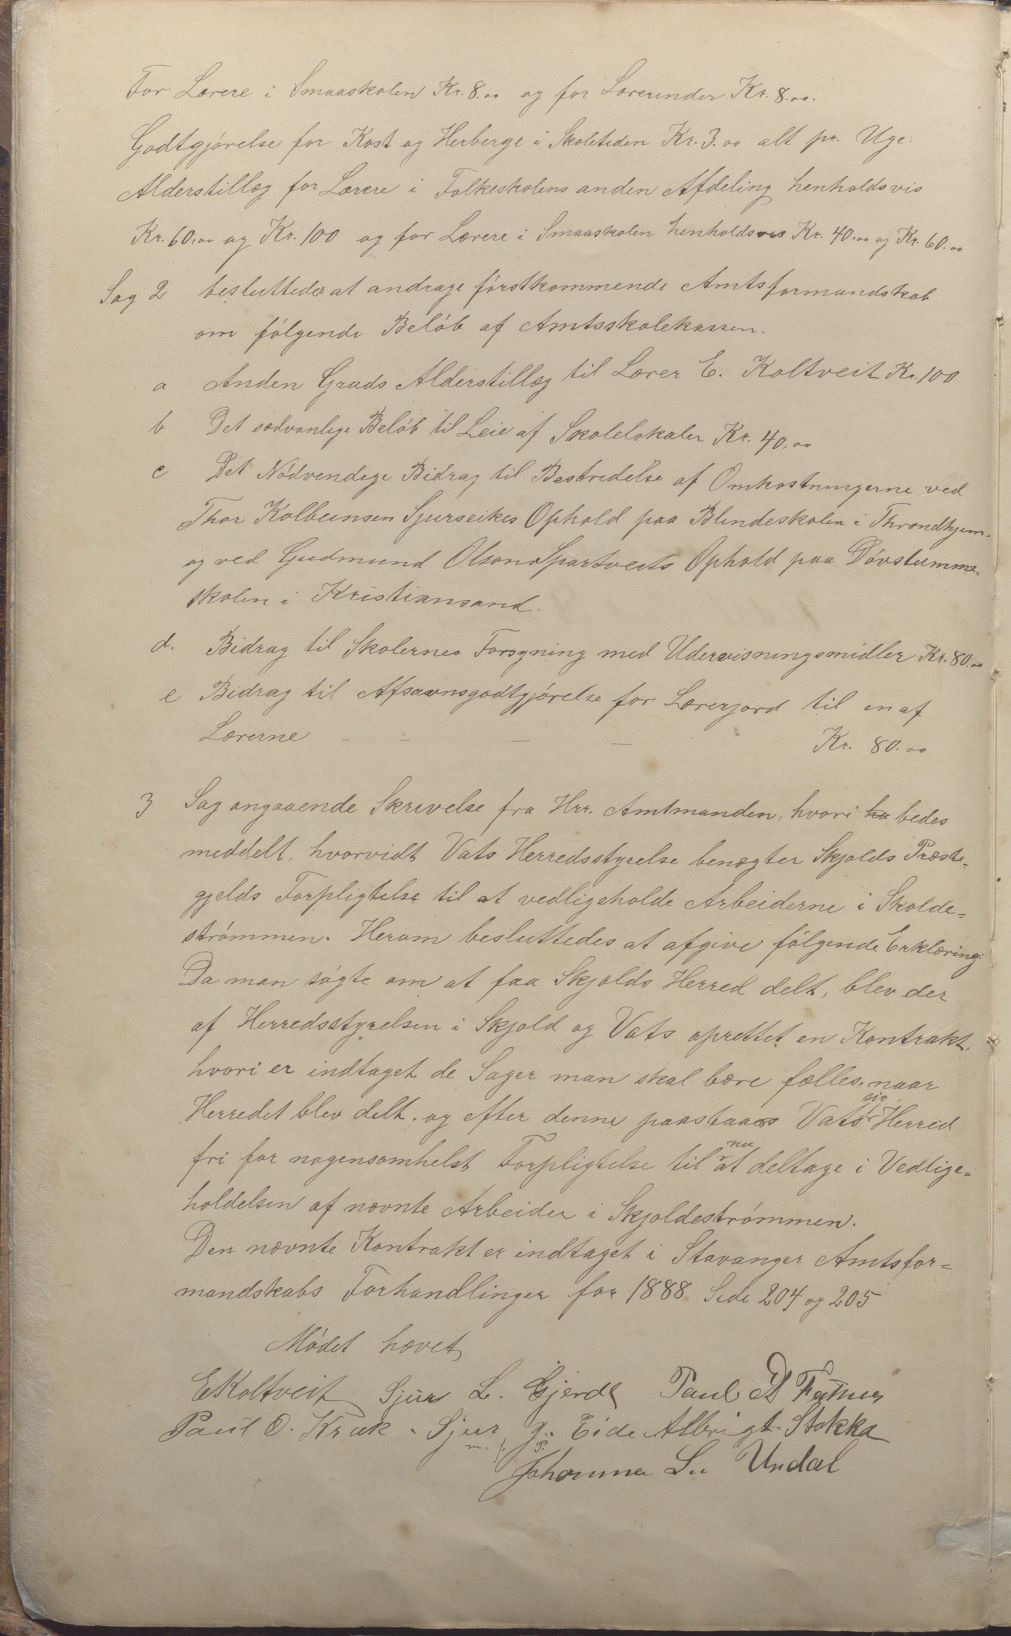 For Lærere i Smaaskolen Kr. 8.00 og for Lærerinder Kr. 8.00.
Godtgjørelse for Kost og Herberge i Skoletiden Kr. 3.00 alt pr. Uge.
Alderstillæg for Lærere i Folkeskolens anden Afdeling henholdsvis
Kr. 60.00 og Kr. 100 og for Lærere i Smaaskolen henholdsvis Kr. 40.00 og Kr. 60.00
Sag 2 besluttedes at andrage førstkommende Amtsformandskab
om følgende Beløb af Amtsskolekassen.
a Anden Grads Alderstillæg til Lærer E. Koltveit Kr. 100
b Det sædvanlige Beløb til Leie af Skolelokaler Kr. 40.00
c Det Nødvendige Bidrag til Bestridelse af Omkostningerne ved
Thor Kolbeinsen Sjurseikes Ophold paa Blindeskolen i Throndhjem.
og ved Gudmund Olsen Spartveits Ophold paa Døvstumme-
skolen i Kristiansand.
d. Bidrag til Skolernes Forsyning med Udervisningsmidler Kr. 80.00
e Bidrag til Afsavnsgodtgjørelse for Lærerjord til en af
Lærerne - - - - Kr. 80.00
3 Sag angaaende Skrivelse fra Hrr. Amtmanden, hvori bedes
meddelt, hvorvidt Vats Herredsstyrelse benægter Skjolds Præste=
gjelds Forpligtelse til at vedligeholde Arbeiderne i Skolde=
strømmen. Herom besluttedes at afgive følgende Erklæring
Da man søgte om at faa Skjolds Herred delt, blev der
af Herredsstyrelsen i Skjold og Vats oprettet en Kontrakt,
hvori er indtaget de Sager man skal bære fælles, naar
Herredet blev delt, og efter denne paastaaes Vats sig Herred
fri for nogensomhelst Forpligtelse til nu at deltage i Vedlige=
holdelsen af nævnte Arbeider i Skjoldestrømmen.
Den nævnte Kontrakt er indtaget i Stavanger Amtsfor=
mandskabs Forhandlinger for 1888 Side 204 og 205
Mødet hævet
E Koltveit Sjur L. Gjerde Paul
Paul O. Krak Sjur G. Eide Albrigt Stokka
m. f. P.
Johannes L. Undal